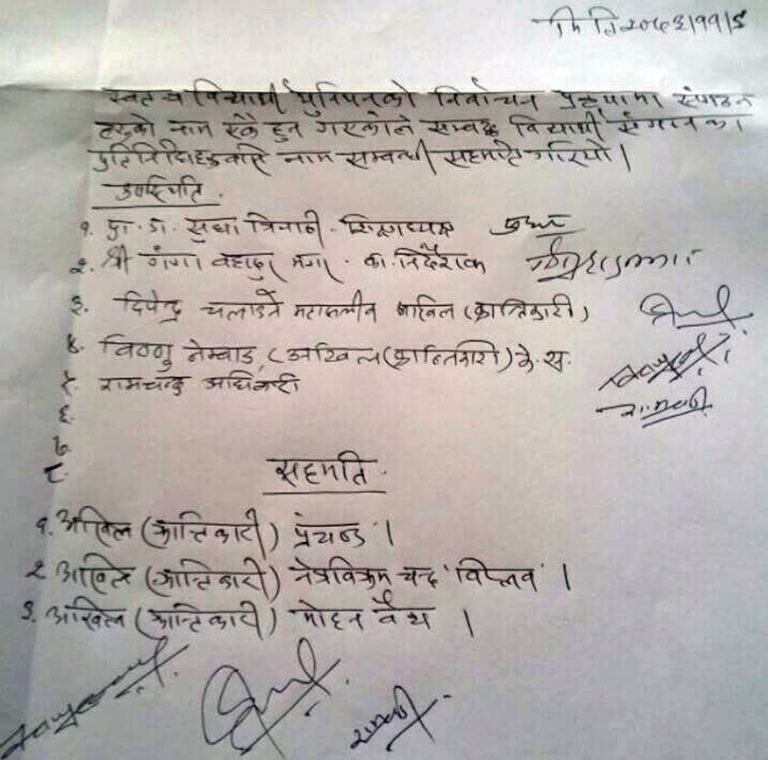 मिति २०७३/११/९
स्वतन्त्र विद्यार्थी युनियनको निर्वाचन प्रक्रियामा संगठन
हरुको नाम एकै हुन गएकोले सम्वद्ध विद्यार्थी संगठनका
प्रतिनिधिहरुबीच नाम सम्बन्धी सहमति गरियो।
उपस्थिति.
१. प्रा. डा. सुधा त्रिपाठी - शिक्षाध्यक्ष
२. श्री गंगा बहादुर मगर - का. निर्देशक
३. दिपेन्द्र चलाउने महाकालीन अखिल (क्रान्तिकारी)
४. विष्णु नेम्वाङ (अखिल (क्रान्तिकारी) के. स.
५. रामचन्द्र अधिकारी
६.
७.
८.
सहमति.
१. अखिल (क्रान्तिकारी) प्रचण्ड।
२. अखिल (क्रान्तिकारी) नेत्रविक्रम चन्द 'विप्लव'।
३. अखिल (क्रान्तिकारी) मोहन वैद्य।